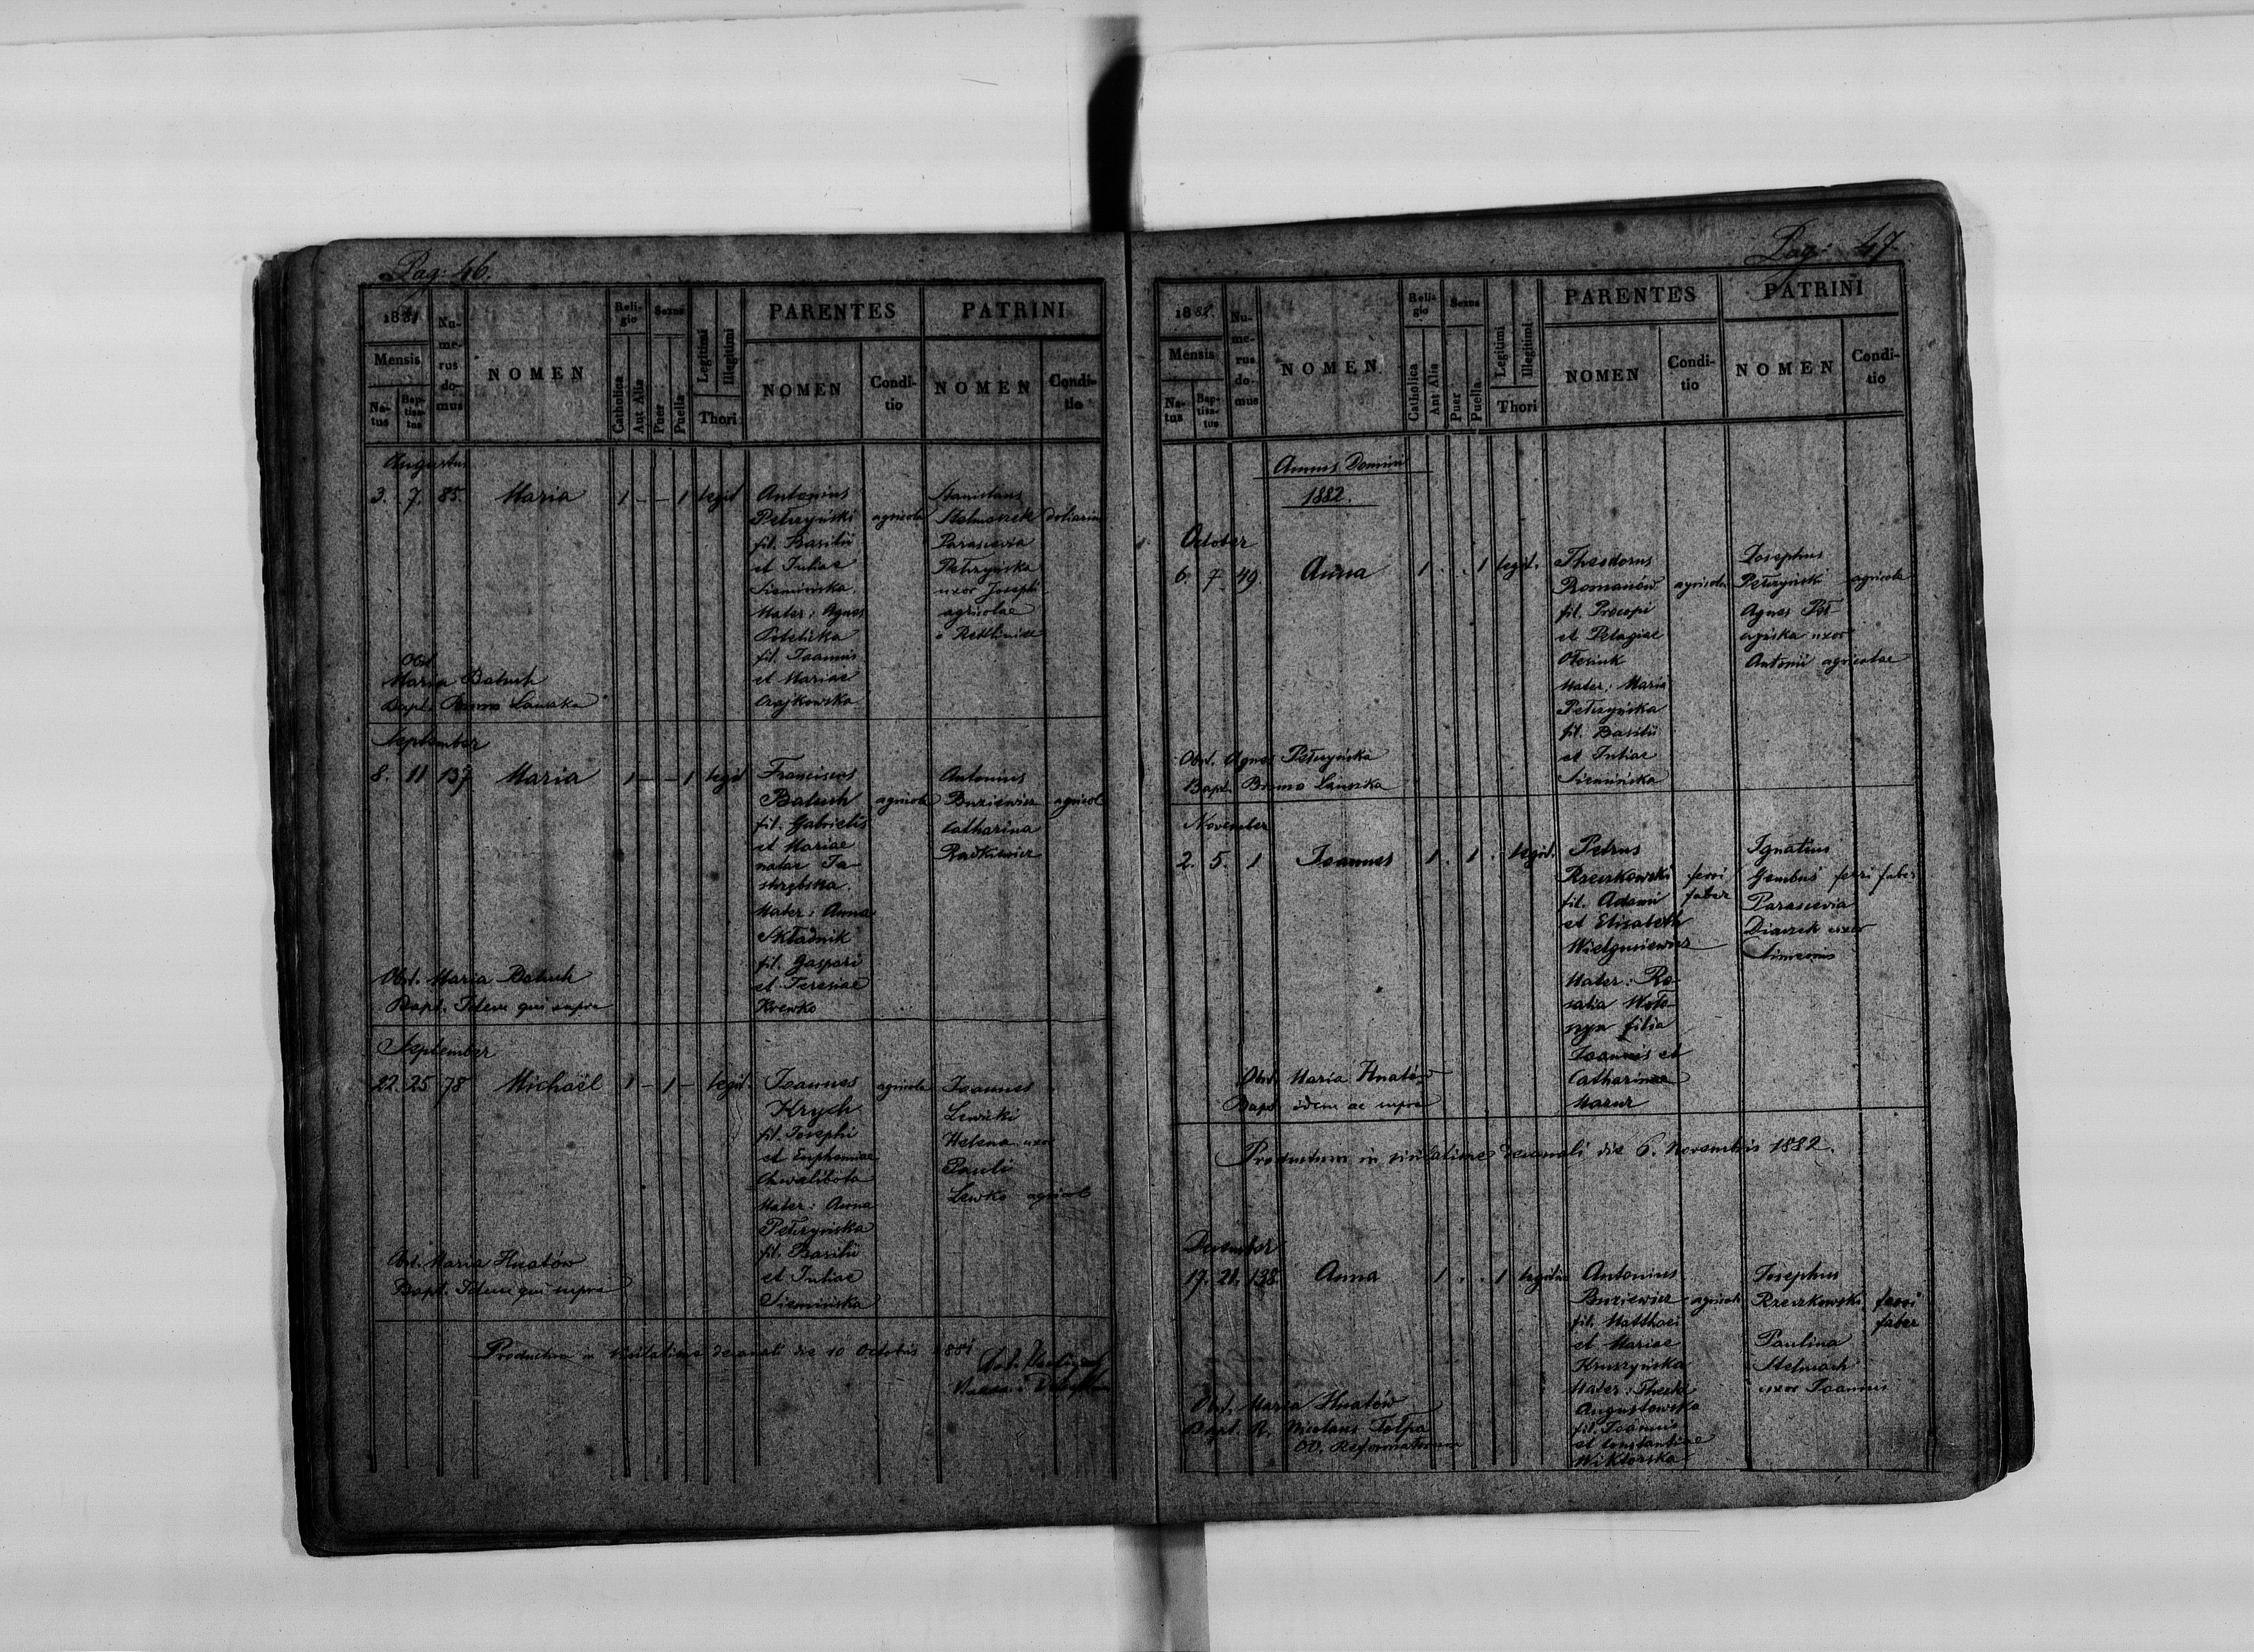 Pag: 46.
1881
Mensis
Natus
Baptisatus
Numerus domus
NOMEN
Religio
Catholica
Aut Alia
Sexus
Puer
Puella
Legitimi
Illegitimi
Thori
PARENTES
NOMEN
Conditio
PATRINI
NOMEN
Conditio
Augustus
3. 7. 85. Maria 1 - - 1 legit
Antonius
Pełczyński agricola
fil. Basilii
et Juliae
Siemińska.
Mater: Agnes
fil. Joannis
et Mariae
Czajkowska
Stanislaus
Stelmaszek doliarius
Parascevia
Pełczyńska
uxor Josephi
agricolae
Obst.
Maria Baluch
Bapt. Bruno Lanucka
September
8. 11 137 Maria 1 - - 1 legit
Franciscus
Baluch agricola
fil. Gabrielis
et Mariae
natae Ja-
strzębska.
Mater: Anna
Składnik
fil. Gaspari
et Teresiae
Krewko
Antonius
Buziewicz agricol
Catharina
Radkiewicz
Obst. Maria Baluch
Bapt. Idem qui supra
September
22. 25 78 Michaël 1 - 1 - legit.
Joannes agricola
Hrych
fil. Josephi
et Euphemiae
Chwalibota
Mater: Anna
Pełczyńska
fil. Basilii
et Juliae
Siemińska
Joannes
Lewicki
Helena uxor
Pauli
Lewko agricol
Obst. Maria Hnatów
Bapt. Idem qui supra
Productum in visitatione decanali die 10 Octobris 1881
Pag: 47.
1882.
Mensis
Natus
Baptisatus
Numerus domus
NOMEN
Religio
Catholica
Aut Alia
Sexus
Puer
Puella
Legitimi
Illegitimi
Thori
PARENTES
NOMEN
Conditio
PATRINI
NOMEN
Conditio
Annus Domini
1882.
October
6. 7. 49. Anna 1 . . 1 legit.
Theodorus
Romanów agricola
fil. Procopi
et Pelagiae
Olesiuk
Mater: Maria
Pełczyńska
fil. Basilii
et Juliae
Siemińska
Josephus
Pełczyński agricola
Agnes Peł-
czyńska uxor
Antonii agricolae
Obst. Agnes Pełczyńska
Bapt. Bruno Lanucka
November
2. 5. 1 Joannes 1 . 1 . legit.
Petrus
Rzeczkowski ferri
fil. Adami faber
et Elisabeth
Wielgusiewicz
Mater: Ro-
salia Woło-
szyn filia
Joannis et
Catharinae
Mazur
Ignatius
Gembuś ferri faber
Parascevia
Diaczek uxor
Simeonis
Obst. Maria Hnatów
Bapt. idem ac supra
Productum in visitatione decanali die 6. Novembris 1882.
December
17. 21. 138. Anna 1 . . 1 legit
Antonius
Buziewicz agricola
fil. Matthaei
et Mariae
Kruszyńska
Mater: Thecla
Augustowska
fil. Joannis
et Constantiae
Wiktorska
Josephus
Rzeczkowski ferri
faber
Paulina
Stelmach
uxor Joannis
Obst. Maria Hnatów
Bapt. R. Nicolaus Tołpa
OO. Reformatorum